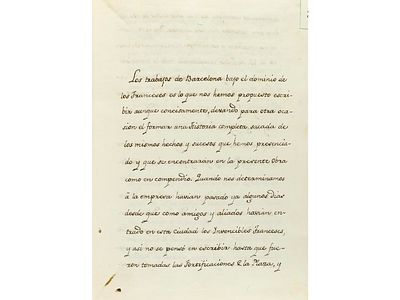 Los trabajos de Barcelona bajo el dominio de
los Franceses es lo que nos hemos propuesto escri-
bir aunque concisamente, dexando para otra oca-
sion el formar una Historia completa, sacada de
los mismos hechos y sucesos que hemos presencia-
do y que se encontrarán en la presente Obra
como en compendio. Quando nos determinamos
à la empresa havian pasado ya algunos dias
desde que como amigos y aliados havian en-
trado en esta ciudad los Invencibles Franceses,
y asi no se pensó en escribir hasta que fue-
ron tomadas las Fortificaciones & la Plaza, y